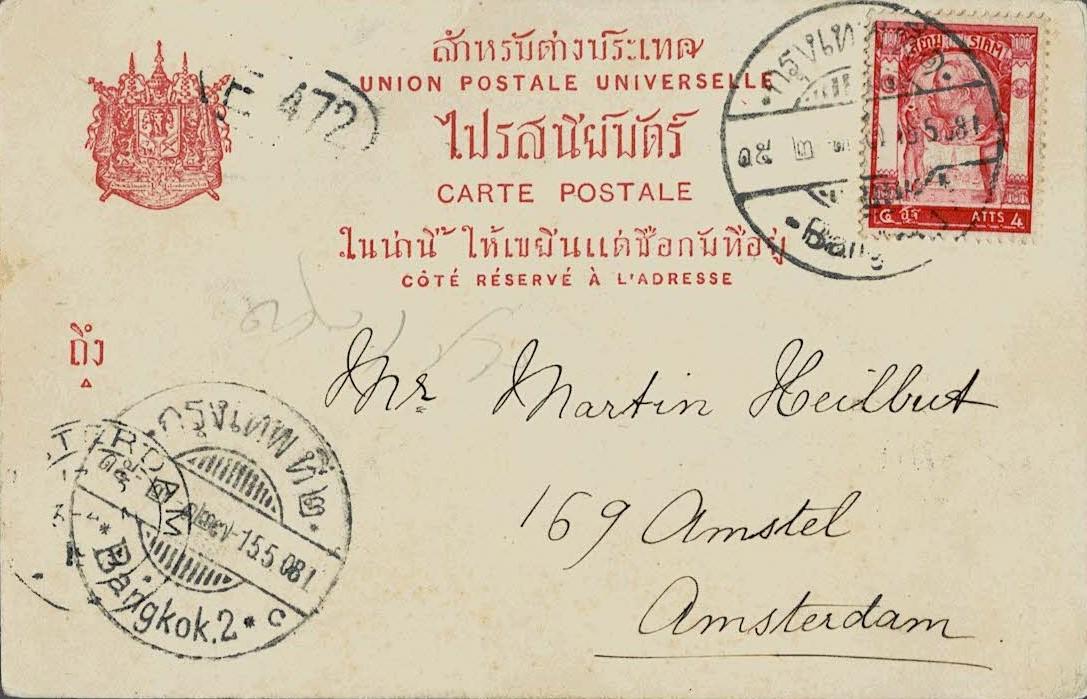 สำหรับต่างประเทศ
UNION POSTALE UNIVERSELLE
E 472
ไปรสนียบัตร์
CARTE POSTALE
ในน่านี้ ให้เขียนแต่ชื่อกับที่อยู่
CÔTÉ RÉSERVÉ À L'ADRESSE
สยาม SIAM
ATTS 4
๑๕ ๒ 15.5.08 1
Bang
ถึง
Mr Martin Heilbut
169 Amstel
Amsterdam
กรุงเทพ ที่๒
15.5 08 1
Bangkok.2 * c
STERDAM